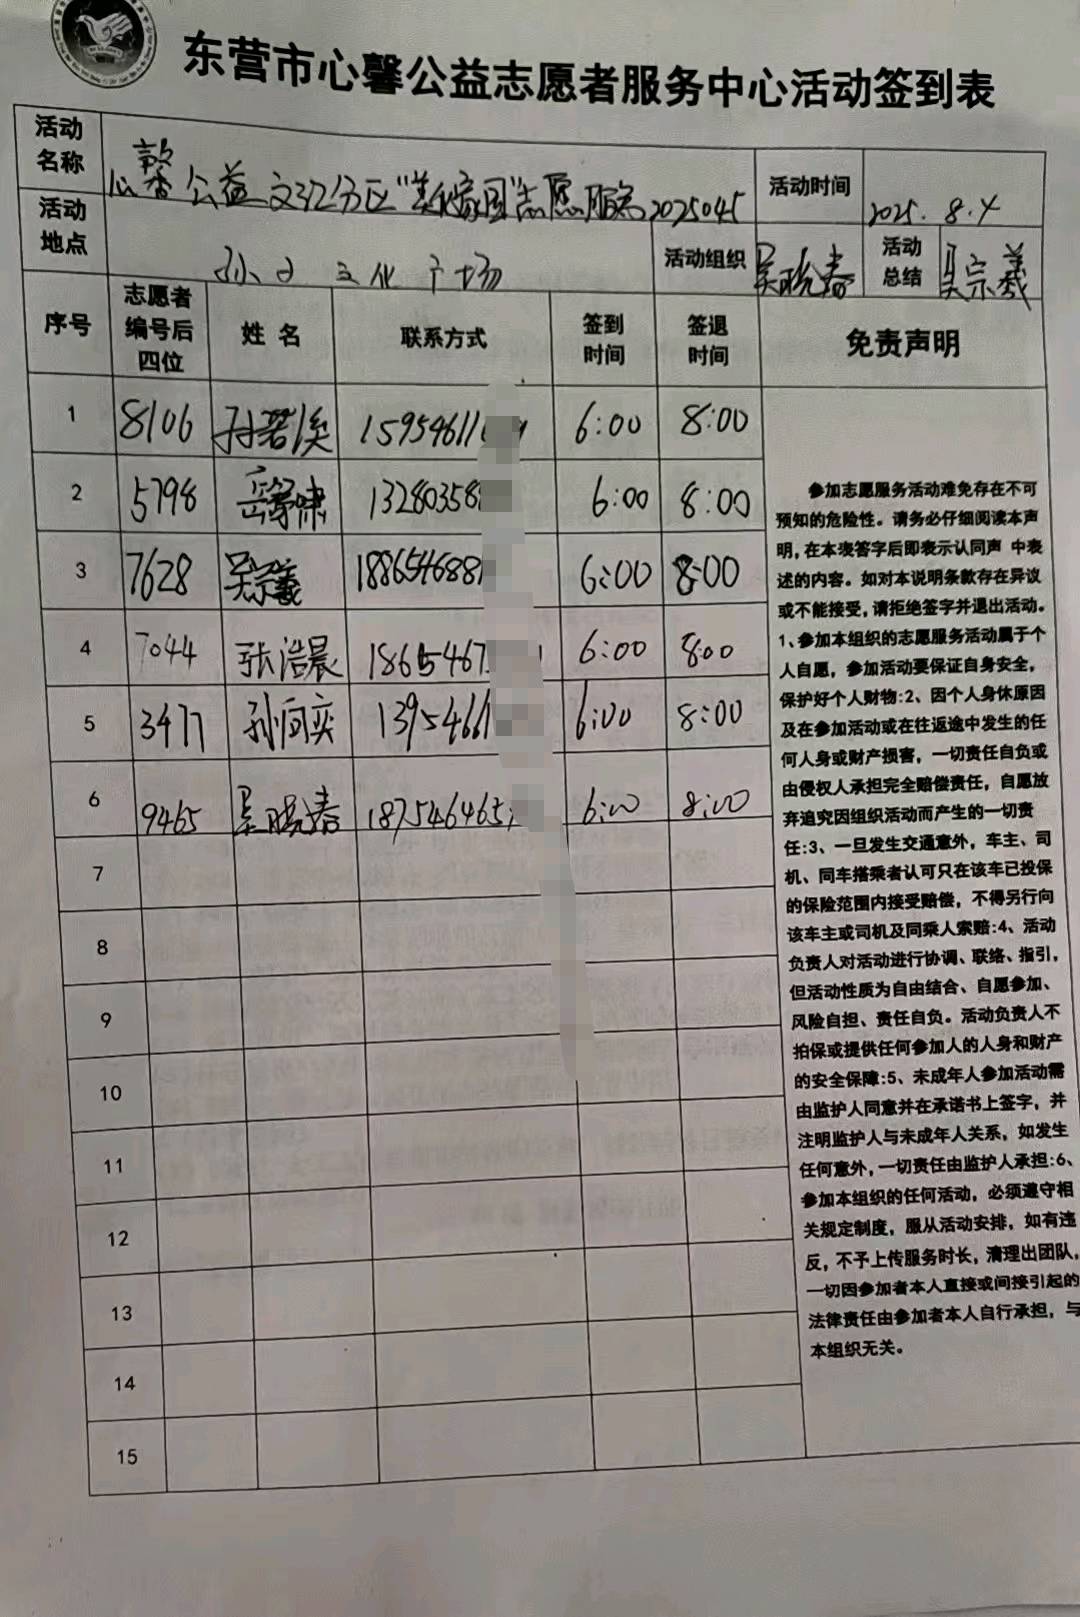 东营市心馨公益志愿者服务中心活动签到表
活动名称 心馨公益文汇分区“美化家园”志愿服务2025045 活动时间 2025.8.4
活动地点 孙子文化广场 活动组织 吴晓春 活动总结 吴宗羲
序号 志愿者编号后四位 姓名 联系方式 签到时间 签退时间 免责声明
1 8106 孙若溪 15954611 6:00 8:00
2 5798 岳梦啸 13280358 6:00 8:00
3 7628 吴宗羲 188654688 6:00 8:00
4 7044 张浩晨 1865467 6:00 8:00
5 3477 孙问奕 13954661 6:00 8:00
6 9465 吴晓春 187546465 6:00 8:00
7
8
9
10
11
12
13
14
15
参加志愿服务活动难免存在不可
预知的危险性。请务必仔细阅读本声
明,在本表签字后即表示认同声 中表
述的内容。如对本说明条款存在异议
或不能接受,请拒绝签字并退出活动。
1、参加本组织的志愿服务活动属于个
人自愿，参加活动要保证自身安全,
保护好个人财物:2、因个人身休原因
及在参加活动或在往返途中发生的任
何人身或财产损害，一切责任自负或
由侵权人承担完全赔偿责任，自愿放
弃追究因组织活动而产生的一切责
任:3、一旦发生交通意外，车主、司
机、同车搭乘者认可只在该车已投保
的保险范围内接受赔偿，不得另行向
该车主或司机及同乘人索赔:4、活动
负责人对活动进行协调、联络、指引,
但活动性质为自由结合、自愿参加、
风险自担、责任自负。活动负责人不
拍保或提供任何参加人的人身和财产
的安全保障:5、未成年人参加活动需
由监护人同意并在承诺书上签字，并
注明监护人与未成年人关系，如发生
任何意外,一切责任由监护人承担:6、
参加本组织的任何活动，必须遵守相
关规定制度，服从活动安排，如有违
反，不予上传服务时长，清理出团队,
一切因参加者本人直接或间接引起的
法律责任由参加者本人自行承担，与
本组织无关。